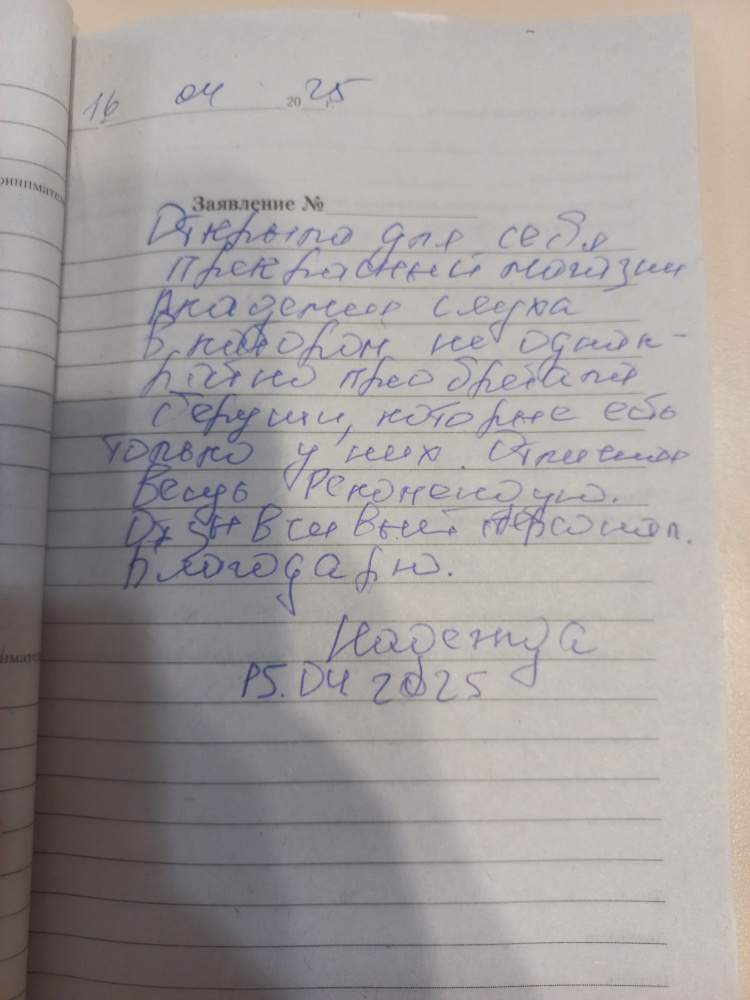 16 04 2025 г.
ринимател
Заявление №
Открыла для себя
прекрасный магазин
Академия слуха
В котором не однак-
ратно преобретала
беруши, которые есть
только у них. Отличная
вещь Рекомендую.
Отзывчивый персонал.
Благодарю.
Надежда
15.04 2025
имател